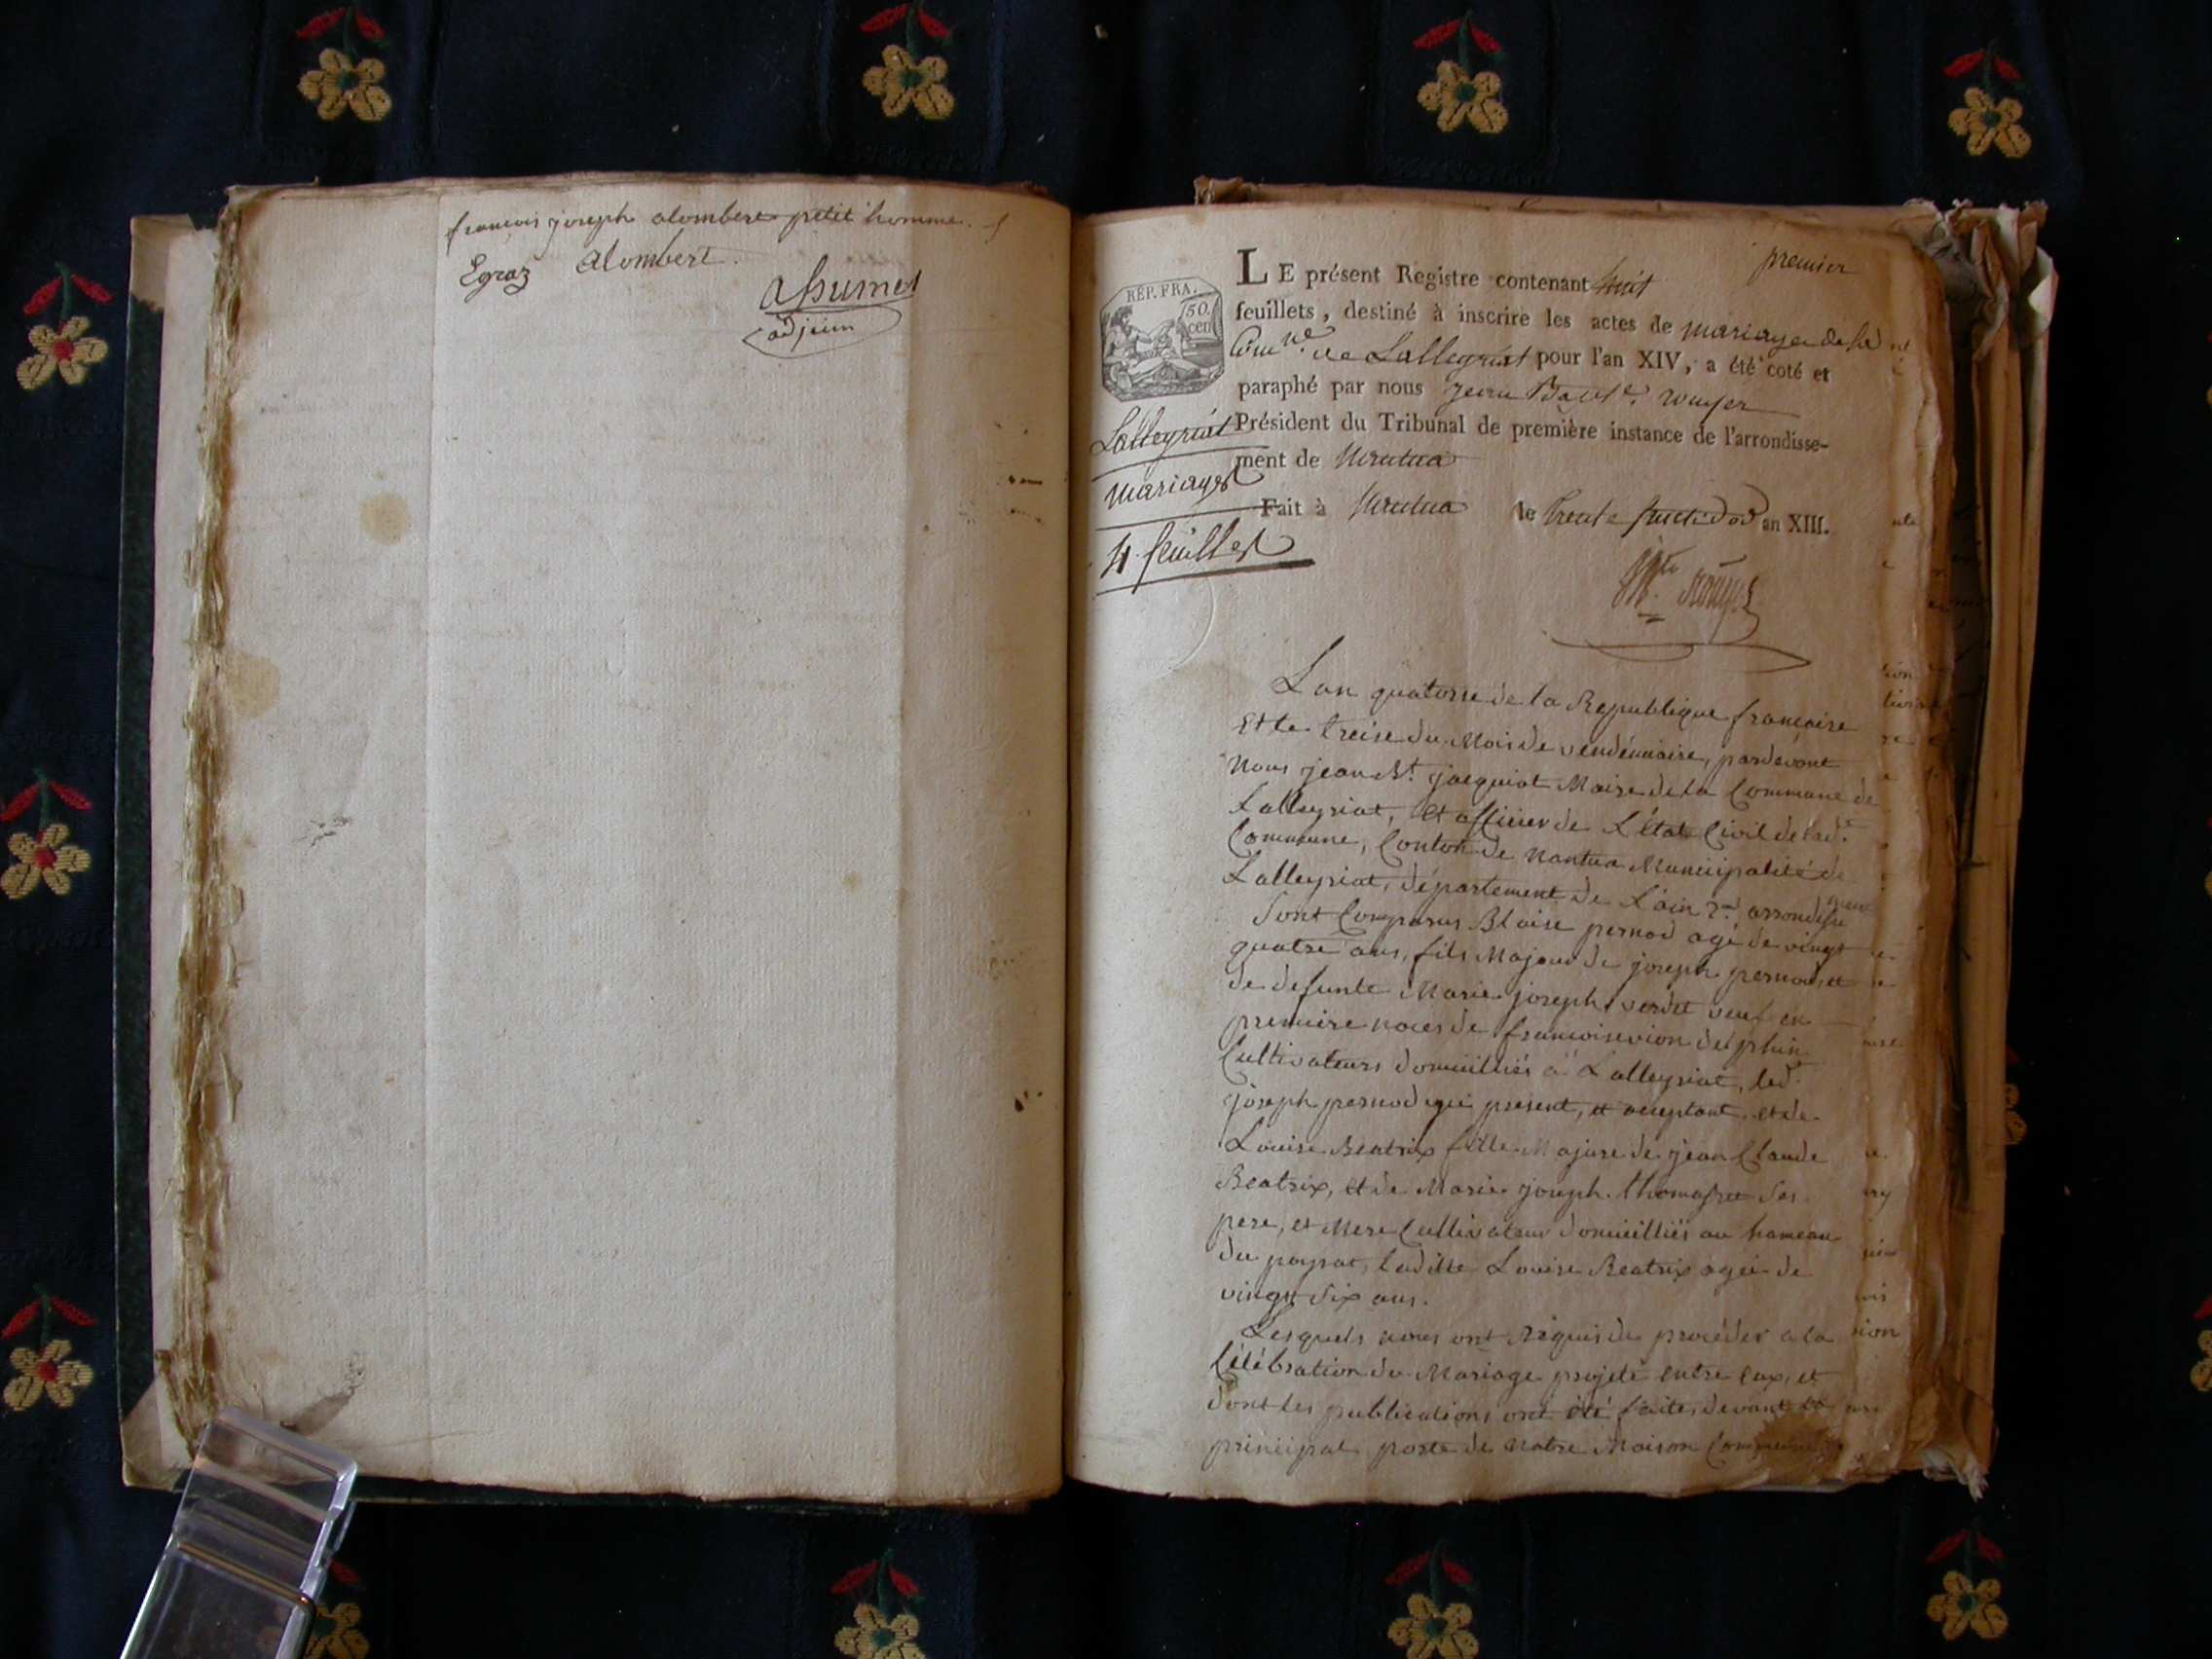 françois joseph alombert petit homme
Egraz alombert.
adjoint
premier
LE présent Registre contenant huit
feuillets, destiné à inscrire les actes de mariages de la
Com.ne de Lalleyriat pour l'an XIV, a été coté et
paraphé par nous Jean Bapt.e Rouyer
Président du Tribunal de première instance de l'arrondisse-
ment de Nantua
Fait à Nantua le trente fructidor an XIII.
RÉP. FRA.
50.
cen
Lalleyriat
mariages
4 feuillets
Rouyer
Lan quatorse de la Republique francaise
Et le treise du Mois de vendémiaire, pardevant
Nous jean Bt. jacquiot Maire de la Commune de
Lalleyriat, Et officier de L'état Civil de lad.e
Commune, Canton de Nantua Municipalité de
Lalleyriat, département de L'ain 2.me arrondissement
Sont Comparus Blaise pernod agé de vingt
quatre ans, fils Majeur de joseph pernod, et
de defunte Marie joseph verdet veuf en
premiere noces de francoise vion delphin
Cultivateurs domicilliés a Lalleyriat, led.
joseph pernod ici present, et acceptant, et de
Louise Beatrix fille Majure de jean Claude
Beatrix, et de Marie joseph thomasset ses
pere, et Mere Cultivateur domicilliés au hameau
du poyzat, laditte Louise Beatrix agée de
vingt Six ans.
Lesquels nous ont Réquis de procéder a la
Célébration du Mariage projeté entre eux, et
dont les publications ont été faites devant la
principal porte de Notre Maison Commune